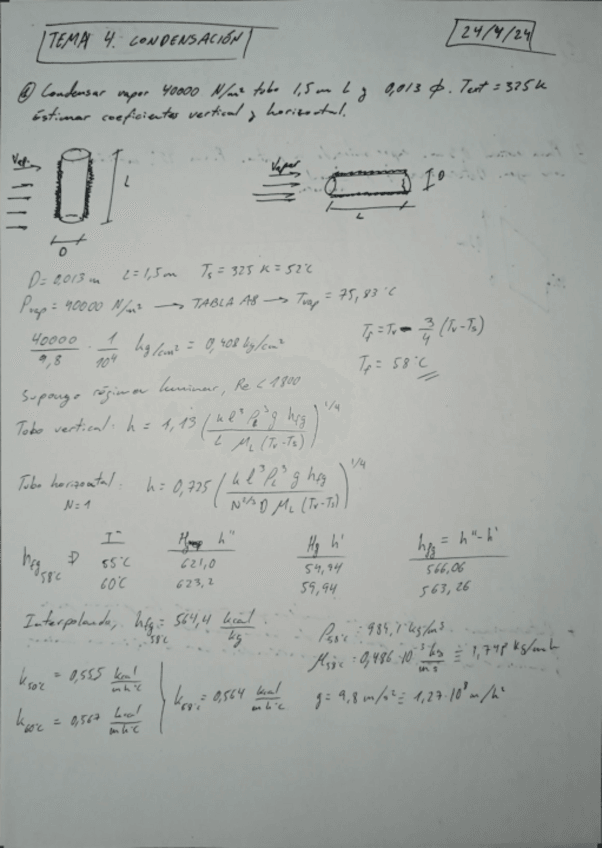 TEMA 4. CONDENSACIÓN
24/4/24
① Condensar vapor 40000 N/m² tubo 1,5 m L y 0,013 φ. Text = 325 K
Estimar coeficientes vertical y horizontal.
Vap.
L
D
Vapor
D
L
D = 0,013 m L = 1,5 m Ts = 325 K = 52°C
Pvap = 40000 N/m² → TABLA A8 → Tvap = 75,83°C
40000/9,8 · 1/10⁴ kg/cm² = 0,408 kg/cm²
Tf = Tv - 3/4 (Tv-Ts)
Tf = 58°C
Supongo régimen laminar, Re < 1800
Tubo vertical: h = 1,13 (k l³ ρl³ g hfg / L μL (Tv-Ts))^1/4
Tubo horizontal: h = 0,725 (k l³ ρL³ g hfg / N^2/3 D μL (Tv-Ts))^1/4
N = 1
hfg 58°C
T h" Hg h' hfg = h"-h'
55°C 621,0 54,94 566,06
60°C 623,2 59,94 563,26
Interpolando, hfg 58°C = 564,4 kcal/kg
ρ58°C = 984,1 kg/m³
μ58°C = 0,486·10⁻³ kg/m s = 1,748 kg/m h
k50°C = 0,555 kcal/m h °C
k60°C = 0,567 kcal/m h °C
k58°C = 0,564 kcal/m h °C
g = 9,8 m/s² = 1,27·10⁸ m/h²